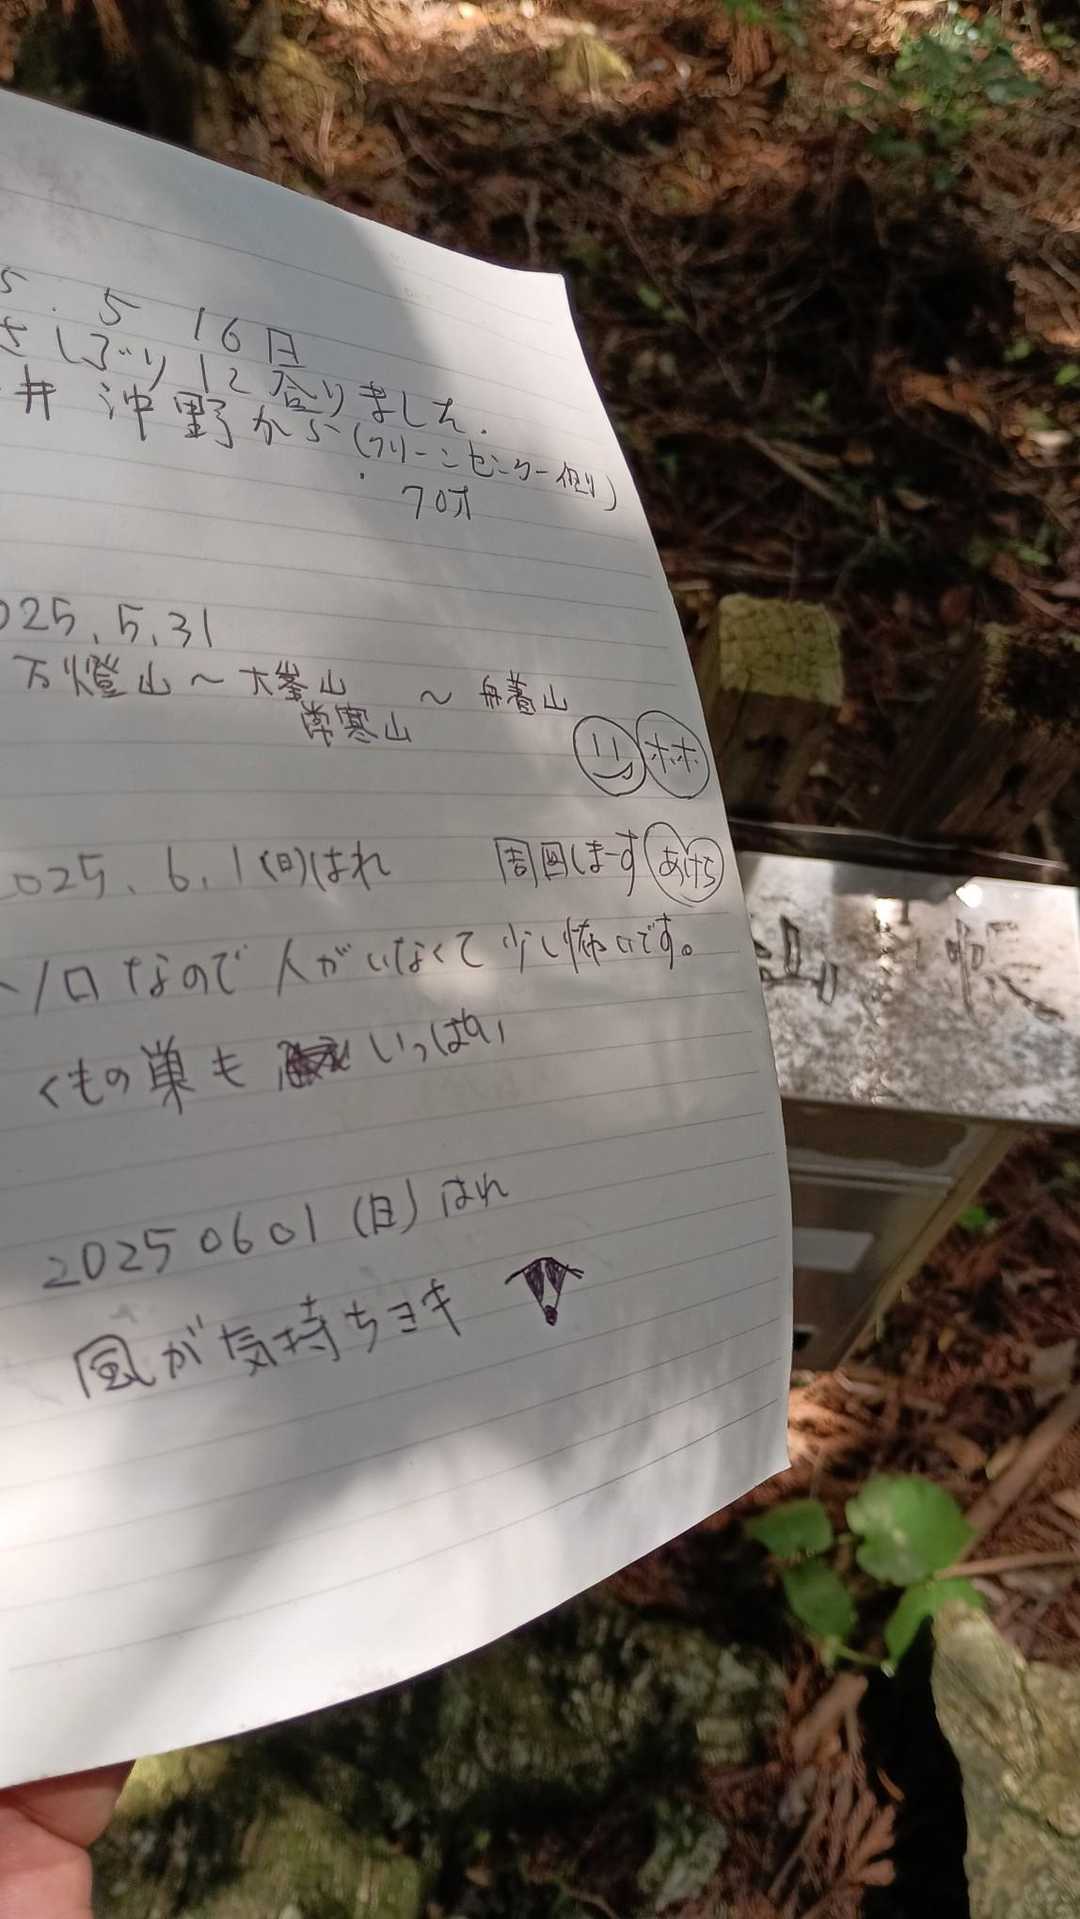 5. 5 16日
さしぶりに登りました.
井 沖野から(クリーンセンター側)
70才
025.5.31
万燈山〜大峯山 〜 舟着山
常寒山
ホホ
2025.6.1(日)はれ 周回しまーす あけら
ソロなので人がいなくて少し怖いです。
くもの巣も いっぱい
2025 06 01 (日) はれ
風が気持ちヨキ
山 帳